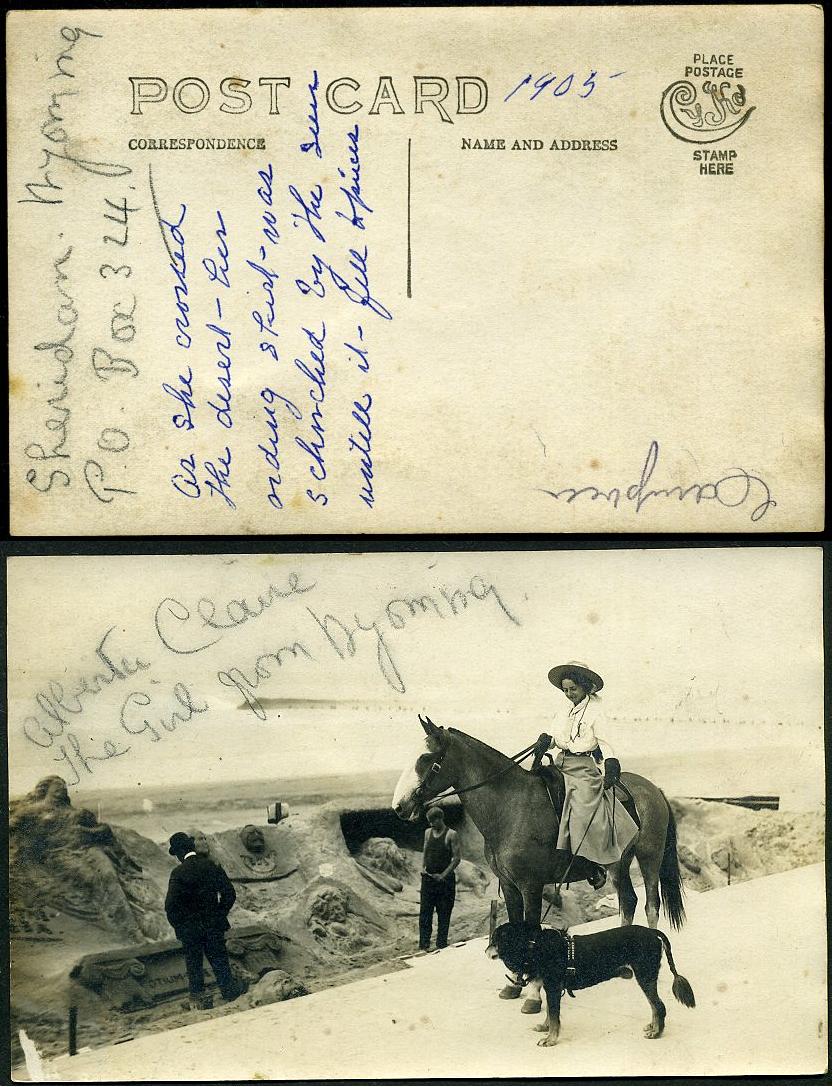 Sheridan. Wyoming
P.O. Box 324.
POST CARD
1905
PLACE
POSTAGE
STAMP
HERE
CORRESPONDENCE
NAME AND ADDRESS
as she crossed
the desert - her
riding skirt - was
schorched by the sun
untill it - fell to pieces
Alberta Claire
The Girl from Wyoming.